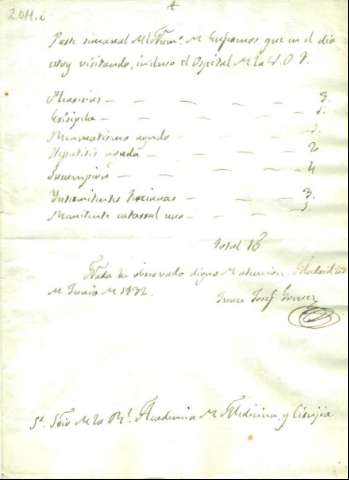 2011.i
Parte semanal del Num.º de Enfermos que en el dia
estoy visitando, incluso el Ospital de la V. O. T.
Pleuresias — — — — — 3.
Erisipela — — — — — 1.
Reumatismo agudo — — — — 1.
Hepatitis aguda — — — — 2
Sarampion — — — — — 4
Intermitentes Tercianas — — — 3.
Remitente catarral uno — — —
Total 16
Nada he observado digno de atencion. Madrid
de Junio de 1832.
Josef
Sr. Srio de la Rl. Academia de Medicina, y Cirujia